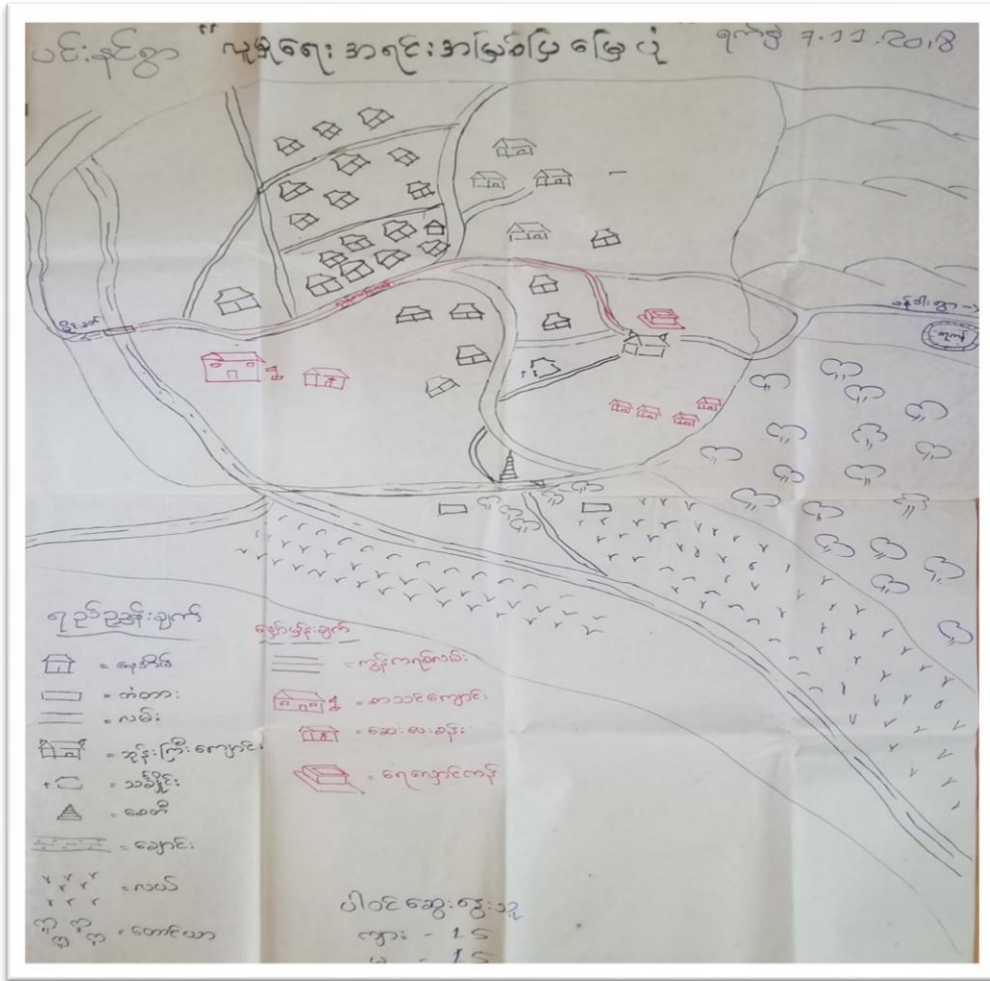 ပင်းနင်ရွာ "လူမှုရေး အရင်းအမြစ်ပြ မြေပုံ ရက်စွဲ 7.11.2018
မန်ဝါးရွာ →
ရည်ညွှန်းချက်
= နေအိမ်
= တံတား
= လမ်း
= ဘုန်းကြီးကျောင်း
= သင်္ချိုင်း
= စေတီ
= ချောင်း
= လယ်
= တောင်ယာ
မျှော်မှန်းချက်
= ကွန်ကရစ်လမ်း
= စာသင်ကျောင်း
= ဆေးပေးခန်း
= ရေလှောင်ကန်
ပါဝင်ဆွေးနွေးသူ
ကျား - 15
မ - 15